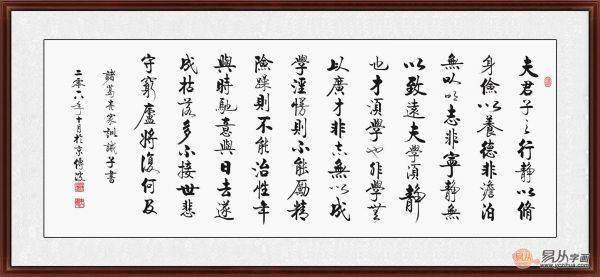 夫君子之行靜以脩
身儉以養德非澹泊
無以明志非寧靜無
以致遠夫學須靜
也才須學也非學無
以廣才非志無以成
學淫慢則不能勵精
險躁則不能治性年
與時馳意與日去遂
成枯落多不接世悲
守窮廬將復何及
諸葛亮家訓誡子書
二零一八年十月於京
易从字画
www.yczihua.com